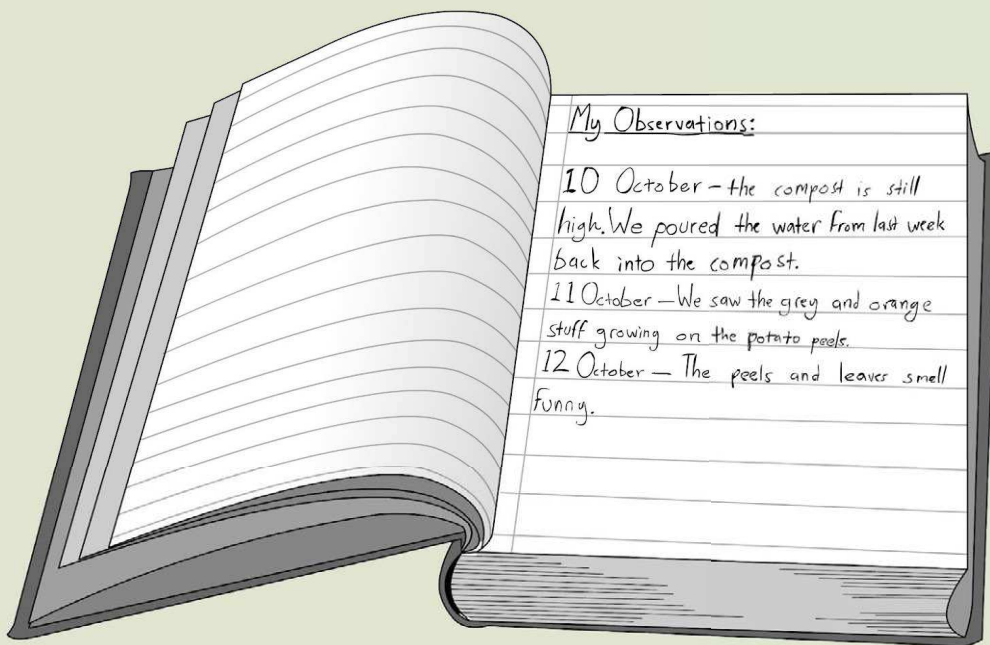 My Observations:
10 October – the compost is still
high. We poured the water from last week
back into the compost.
11 October — We saw the grey and orange
stuff growing on the potato peels.
12 October — The peels and leaves smell
funny.